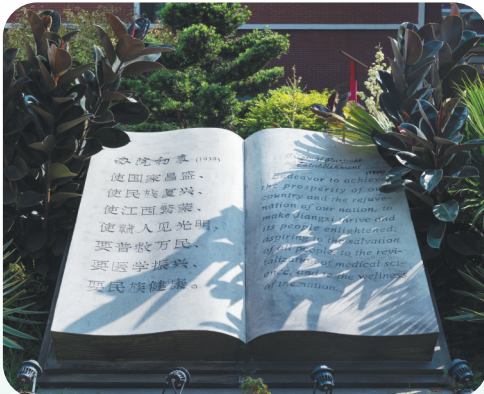 (1938)
使国家昌盛、
使民族复兴、
使江西繁荣、
使赣人见光明、
要普救万民、
要医学振兴、
要民族健康。
Endeavor to achieve
the prosperity of our
country and the rejuve-
nation of our nation, to
make Jiangxi thrive and
its people enlightened;
aspiring to the salvation
of all people, to the revi-
talization of medical sci-
ence, and to the wellness
of the nation.